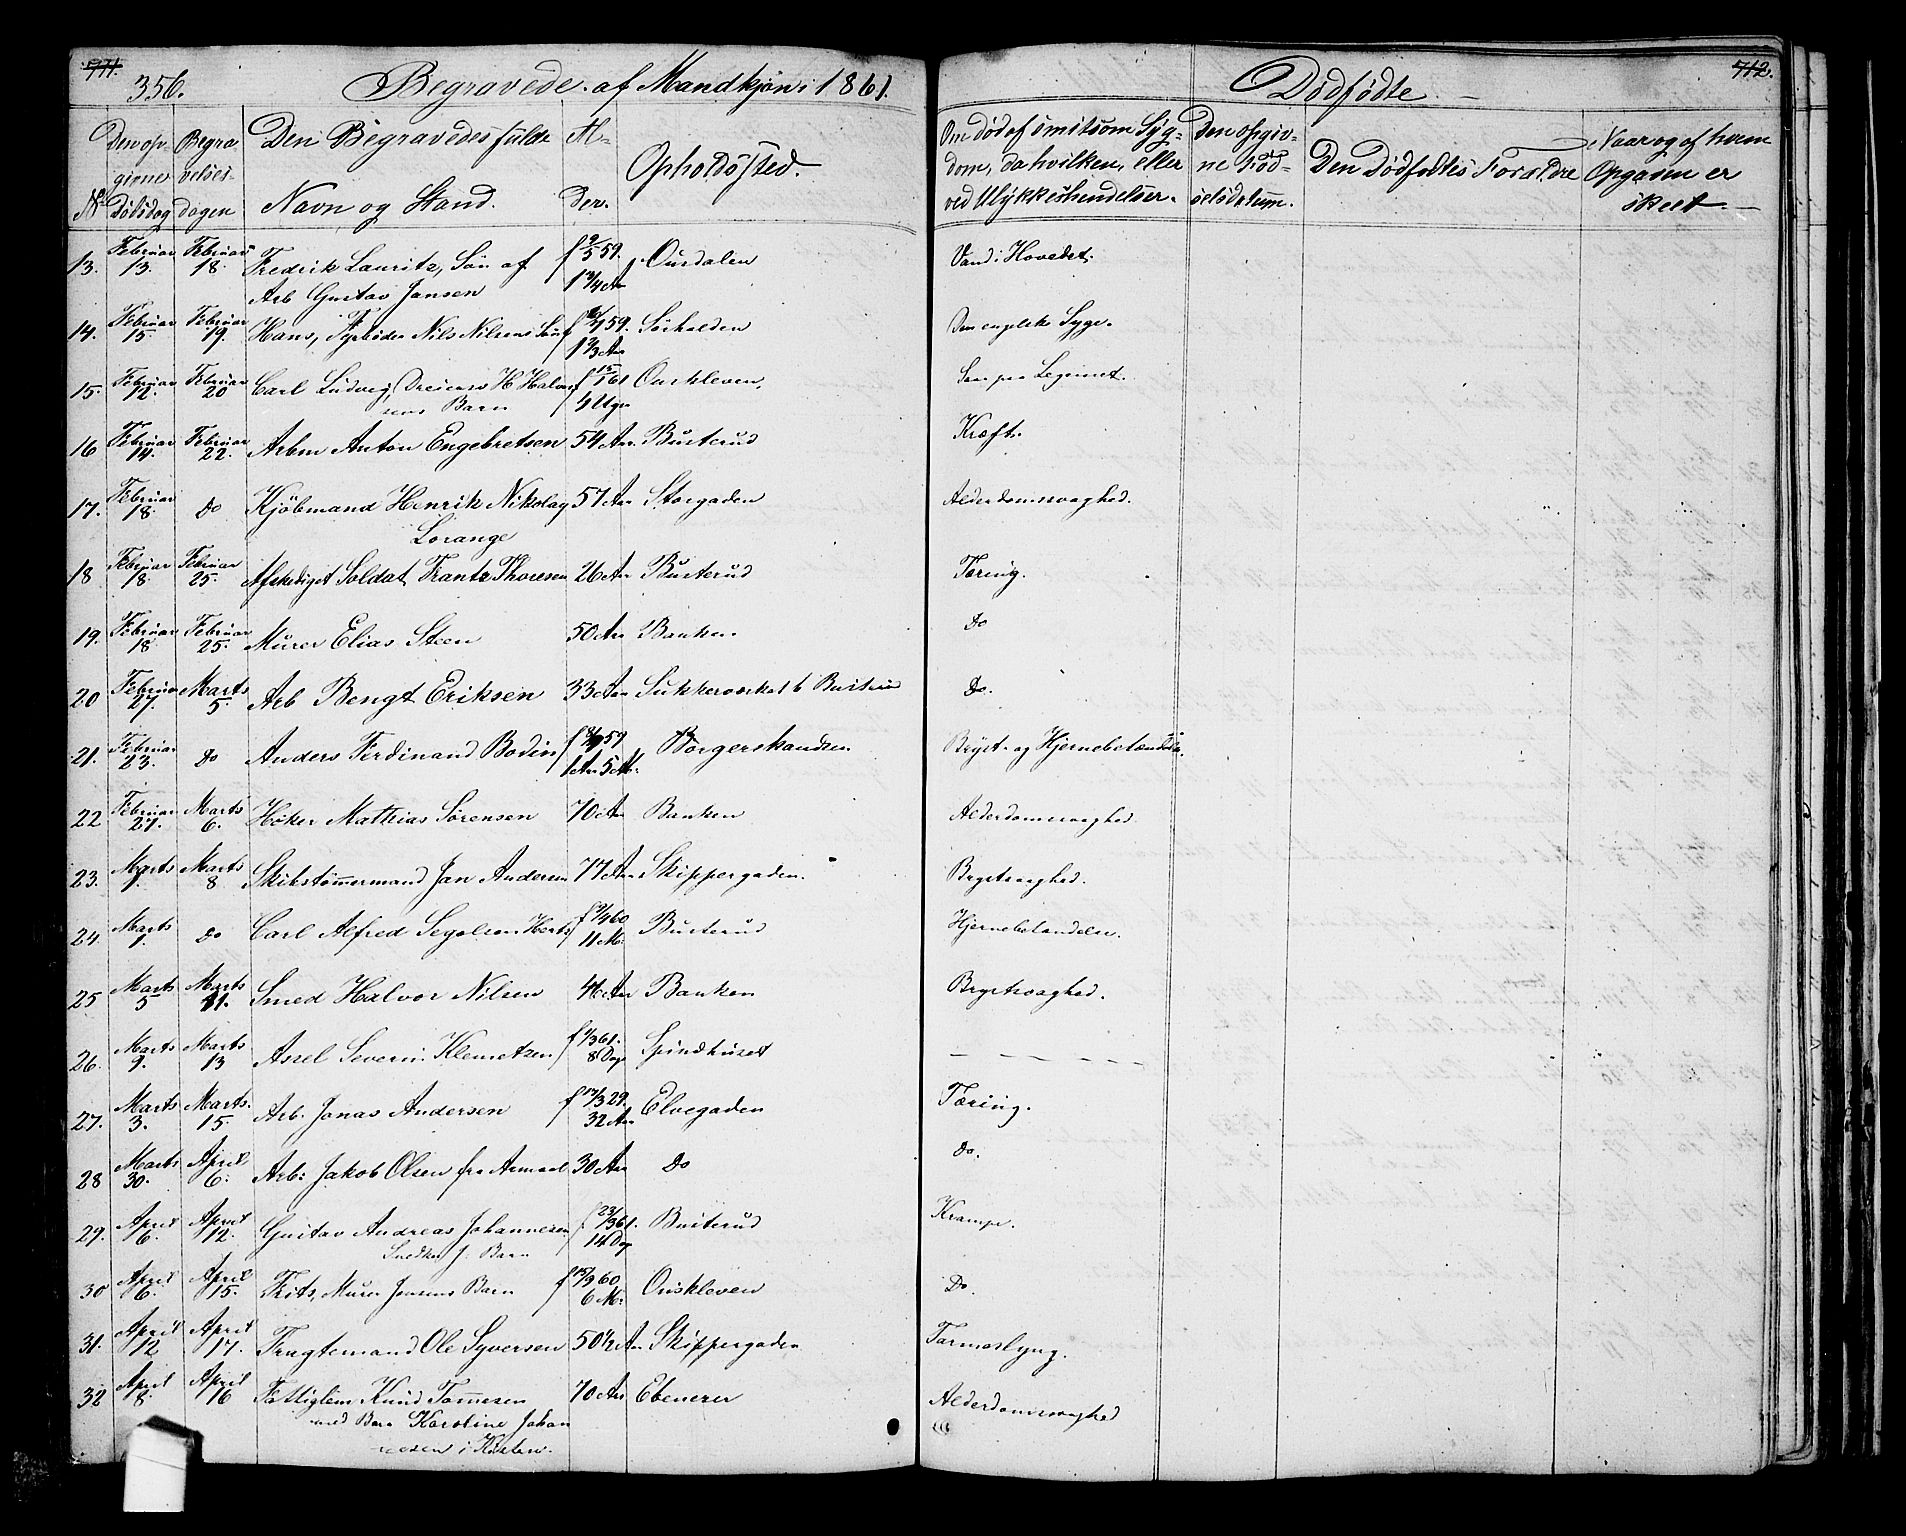 711.
356.
Begravede af Mandkjøn i 1861.
Dødfødte.
712.
No
Den opgivne Dødsdag
Begravelsesdagen
Den Begravedes fulde Navn og Stand.
Alder.
Opholdssted.
Om død af smitsom Sygdom, da hvilken, eller ved Ulykkeshændelser.
Den opgivne Fødselsdatum.
Den Dødfødtes Forældre
Naar og af hvem Opgaven er skeet.
13. Februar 13. Februar 18. Fredrik Lauritz, Søn af f 9/5 59. Ousdalen Vand i Hovedet.
Arb Gustav Jansen 1 3/4 Aar
14. Februar 15. Februar 19. Hans, Fyrbøder Nils Nilsens Søn 59. Sørhalden Den engelske Syge.
1 2/3 Aar
15. Februar 12. Februar 20 Carl Ludvig, H Halvor f 15/1 61 Ouskleven. Saar paa Legemet.
sens Barn 4 Uger
16 Februar 14. Februar 22. Arbm Anton Engebretsen 54 Aar. Busterud Kræft.
17. Februar 18. Do Kjöbmand Henrik Nikolay 57 Aar Storgaden Alderdomssvaghed.
Lorange
18 Februar 18. Februar 25. Afskediget Soldat Frantz Thoresen 26 Aar Busterud Tæring.
19. Februar 18. Februar 25. Murer Elias Steen 50 Aar Banken Do
20 Februar 27. Marts 5. Arb Bengt Eriksen 33 Aar Busterud Do.
21. Februar 23. Do Anders Ferdinand Bodin 59 Borgerskandsen Bryst- og Hjernebetændelse.
1 Aar 5 M:
22 Februar 27. Marts 6. Høker Mathias Sørensen 70 Aar Banken Alderdomssvaghed
23. Marts 1. Marts 8 Skibstømmermand Jan Andersen 77 Aar Skippergaden. Brystsvaghed.
24. Marts 1. Do Carl Alfred f 9/4 60 Busterud Hjernebetændelse.
11 M:
25 Marts 5 Marts 11. Smed Halvor Nilsen Aar Banken Brystsvaghed.
26. Marts 9. Marts 13 Axel Severin Klemetsen f 1/3 61. Spindhuset — — — — —
8 Dage
27. Marts 3. Marts. 15. Arb. Jonas Andersen f 17/3 29. Elvegaden Tæring.
32 Aar
28 Marts 30. April 6. Arb: Jakob Olsen fra Aremark 30 Aar Do Do.
29. April 6. April 12. Gustav Andreas Johannesen f. 23/3 61. Busterud Krampe.
Snedker J. Barn 14 Dage
30 April 6. April 15. Frits, Murer Jensens Barn f 15/9 60 Ouskleven Do.
6 M:
31. April 12 April 17. Fragtemand Ole Syversen 50 1/2 Aar Skippergaden Tarmeslyng.
32 April 8 April 16 Fattiglem Knud Tommesen 70 Aar Ebenezer Alderdomssvaghed
med Barn Karoline Johan
nesen i Kisten.